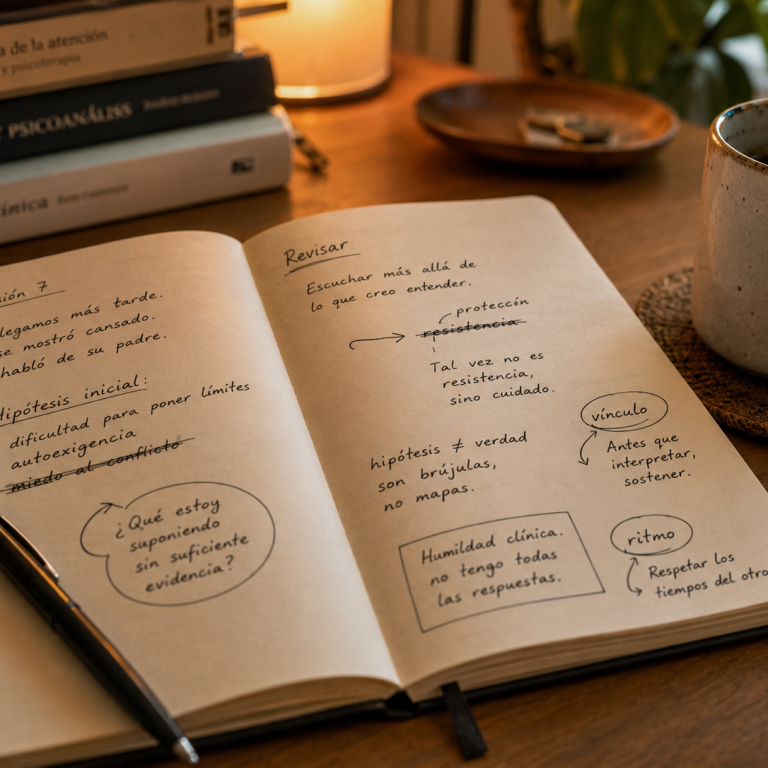 de la atención
y psicoterapia
Y PSICOANÁLISS
ínica
sión 7
legamos más tarde.
se mostró cansado.
habló de su padre.
Hipótesis inicial:
dificultad para poner límites
autoexigencia
miedo al conflicto
¿Qué estoy
suponiendo
sin suficiente
evidencia?
Revisar
Escuchar más allá de
lo que creo entender.
proteccín
resistencia
Tal vez no es
resistencia,
sino cuidado.
hipótesis ≠ verdad
son brújulas,
no mapas.
Humildad clínica.
no tengo todas
las respuestas.
vínculo
Antes que
interpretar,
sostener.
ritmo
Respetar los
tiempos del otro